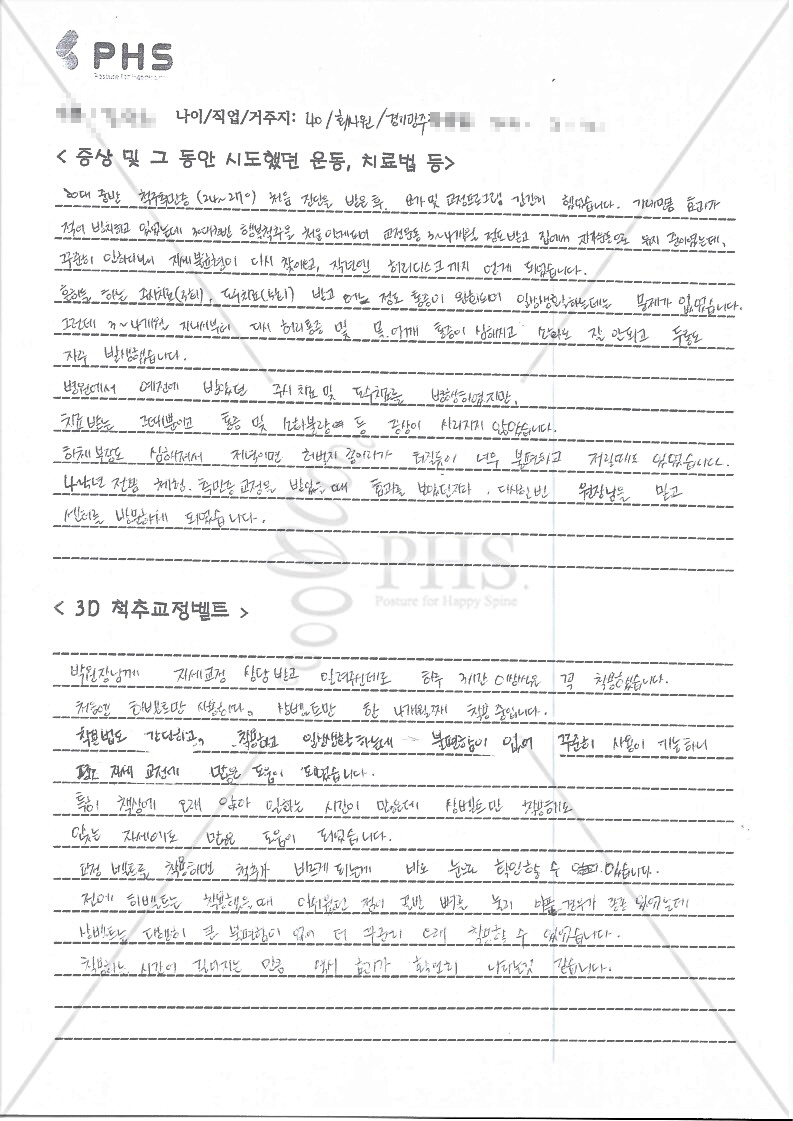 PHS
Posture for Happy Spine
나이/직업/거주지: 40 / 회사원 / 경기광주
< 증상 및 그 동안 시도했던 운동, 치료법 등>
20대 중반 척추측만증 (24~27도) 처음 진단을 받은 후. 요가 및 교정프로그램 간간히 했었습니다. 기대만큼 효과가
적어 방치하고 있었는데 30대 행복척추를 처음 알게되어 교정운동 3~4개월 정도 받고 집에서
꾸준히 안하다보니 자세불균형이 다시 찾아오고, 작년엔 허리디스크까지 얻게 되었습니다.
주사치료, 도수치료 받고 정도 통증이 완화되어 일상생활하는데는 문제가 없었습니다.
그런데 3~4개월 지나서부터 다시 허리통증 및 목.어깨 통증이 심해지고 소화도 잘 안되고 두통도
자주 발생했습니다.
병원에서 예전에 받았던 주사치료 및 도수치료를 병행하였지만,
치료받는 그때뿐이고 통증 및 소화불량 등 증상이 사라지지 않았습니다.
하체 부종도 심해져서 저녁이면 허벅지 종아리가 터질듯이 너무 불편하고 저릴때도 있었습니다.
4년전 체형.측만증 교정을 받았을 때 효과를 보았던지라. 다시한번 원장님을 믿고
센터를 방문하게 되었습니다.
PHS.
Posture for Happy Spine
< 3D 척추교정벨트 >
박원장님께 자세교정 상담 받고 알려주신대로 하루 3시간 이상씩은 꼭 착용했습니다.
처음엔 하벨트만 사용하다. 상벨트만 한 4개월째 착용 중입니다.
착용법도 간단하고, 착용하고 일상생활 하는데 불편함이 없어 꾸준히 사용이 가능하니
자세 교정에 많은 도움이 되었습니다.
특히 책상에 오래 앉아 일하는 시간이 많은데 상벨트만 착용해도
앉는 자세에도 많은 도움이 되었습니다.
교정 벨트를 착용하면 척추가 바르게 펴지는게 바로 눈으로 확인할 수 있습니다.
전에 하벨트는 착용했을때 어려웠던 점이 골반 뼈를 눌러 아플 경우가 종종 있었는데
상벨트는 다행히 큰 불편함이 없어 더 꾸준히 오래 착용할 수 있었습니다.
착용하는 시간이 길어지는 만큼 역시 효과가 확연히 나타는것 같습니다.